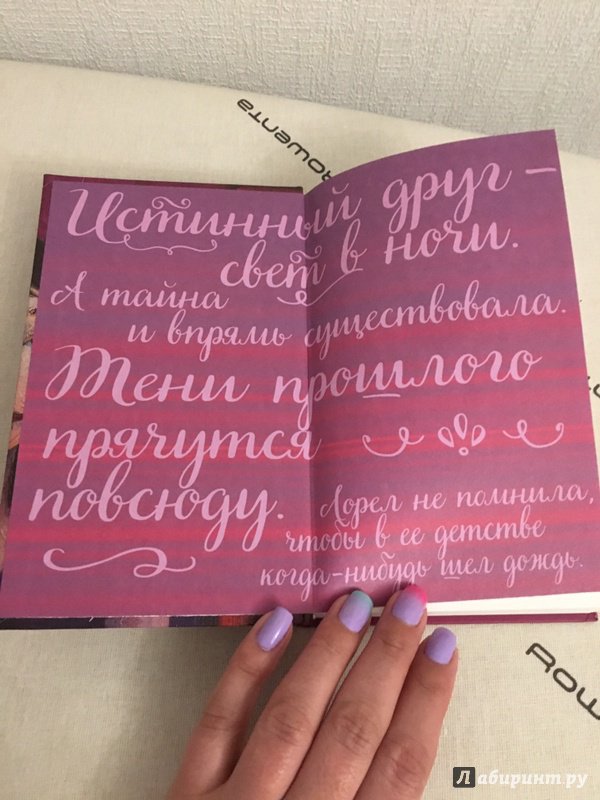 Rowenta
Истинный друг –
свет в ночи.
А тайна
и впрямь существовала.
Тени прошлого
прячутся
повсюду.
Лорел не помнила,
чтобы в ее детстве
когда-нибудь шел дождь.
Row
Лабиринт.ру